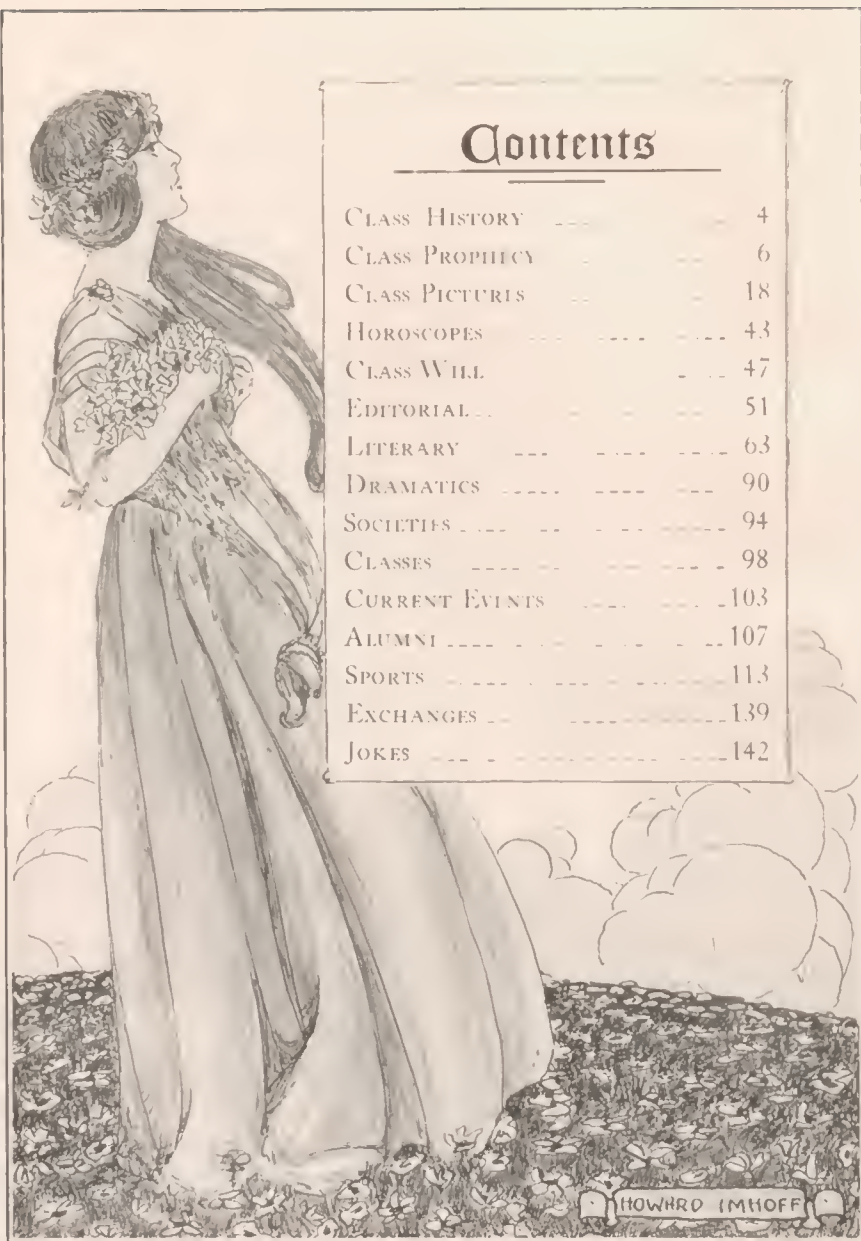 Contents
CLASS HISTORY 4
CLASS PROPHECY 6
CLASS PICTURES 18
HOROSCOPES 43
CLASS WILL 47
EDITORIAL 51
LITERARY 63
DRAMATICS 90
SOCIETIES 94
CLASSES 98
CURRENT EVENTS 103
ALUMNI 107
SPORTS 113
EXCHANGES 139
JOKES 142
HOWARD IMHOFF